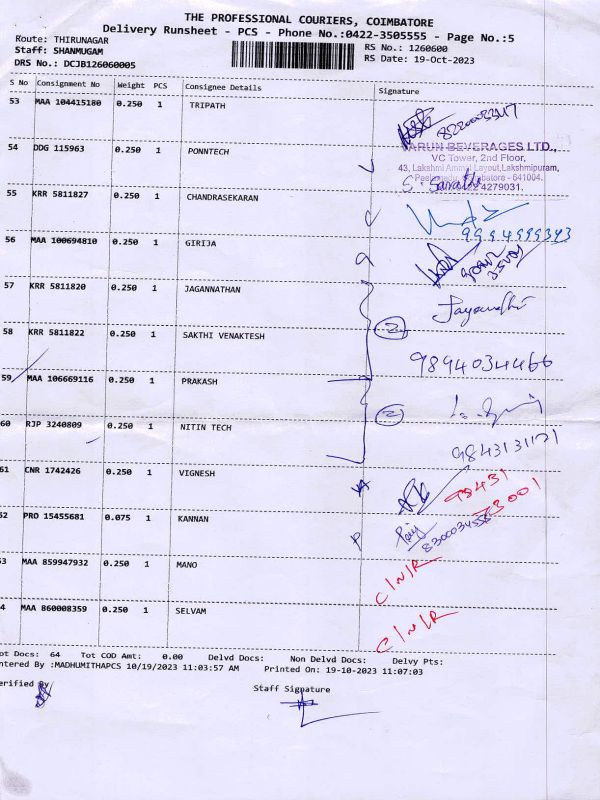 THE PROFESSIONAL COURIERS, COIMBATORE
Delivery Runsheet - PCS - Phone No.:0422-3505555 - Page No.:5
Route: THIRUNAGAR
RS No.: 1260600
Staff: SHANMUGAM
RS Date: 19-Oct-2023
DRS No.: DCJB126060005
S No Consignment No Weight PCS Consignee Details Signature
53 MAA 104415180 0.250 1 TRIPATH
54 DDG 115963 0.250 1 PONNTECH
VARUN BEVERAGES LTD.,
VC Tower, 2nd Floor,
43, Lakshmi Ammal Layout, Lakshmipuram,
641004.
4279031.
55 KRR 5811827 0.250 1 CHANDRASEKARAN
9994999393
56 MAA 100694810 0.250 1 GIRIJA
57 KRR 5811820 0.250 1 JAGANNATHAN
Jayanthi
2
58 KRR 5811822 0.250 1 SAKTHI VENAKTESH
9894034466
59 MAA 106669116 0.250 1 PRAKASH
2
60 RJP 3240809 0.250 1 NITIN TECH
9843131171
61 CNR 1742426 0.250 1 VIGNESH
98431
73001
62 PRO 15455681 0.075 1 KANNAN
P
53 MAA 859947932 0.250 1 MANO
C/N/R
4 MAA 860008359 0.250 1 SELVAM
C/N/R
ot Docs: 64 Tot COD Amt: 0.00 Delvd Docs: Non Delvd Docs: Delvy Pts:
ntered By :MADHUMITHAPCS 10/19/2023 11:03:57 AM Printed On: 19-10-2023 11:07:03
erified By
Staff Signature